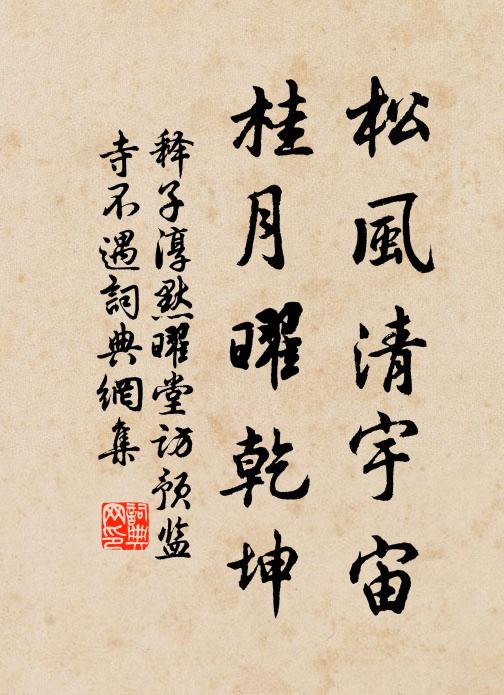 松風清宇宙
桂月曜乾坤
释子淳默曜堂访预监
寺不遇詞典網集
詞典网印